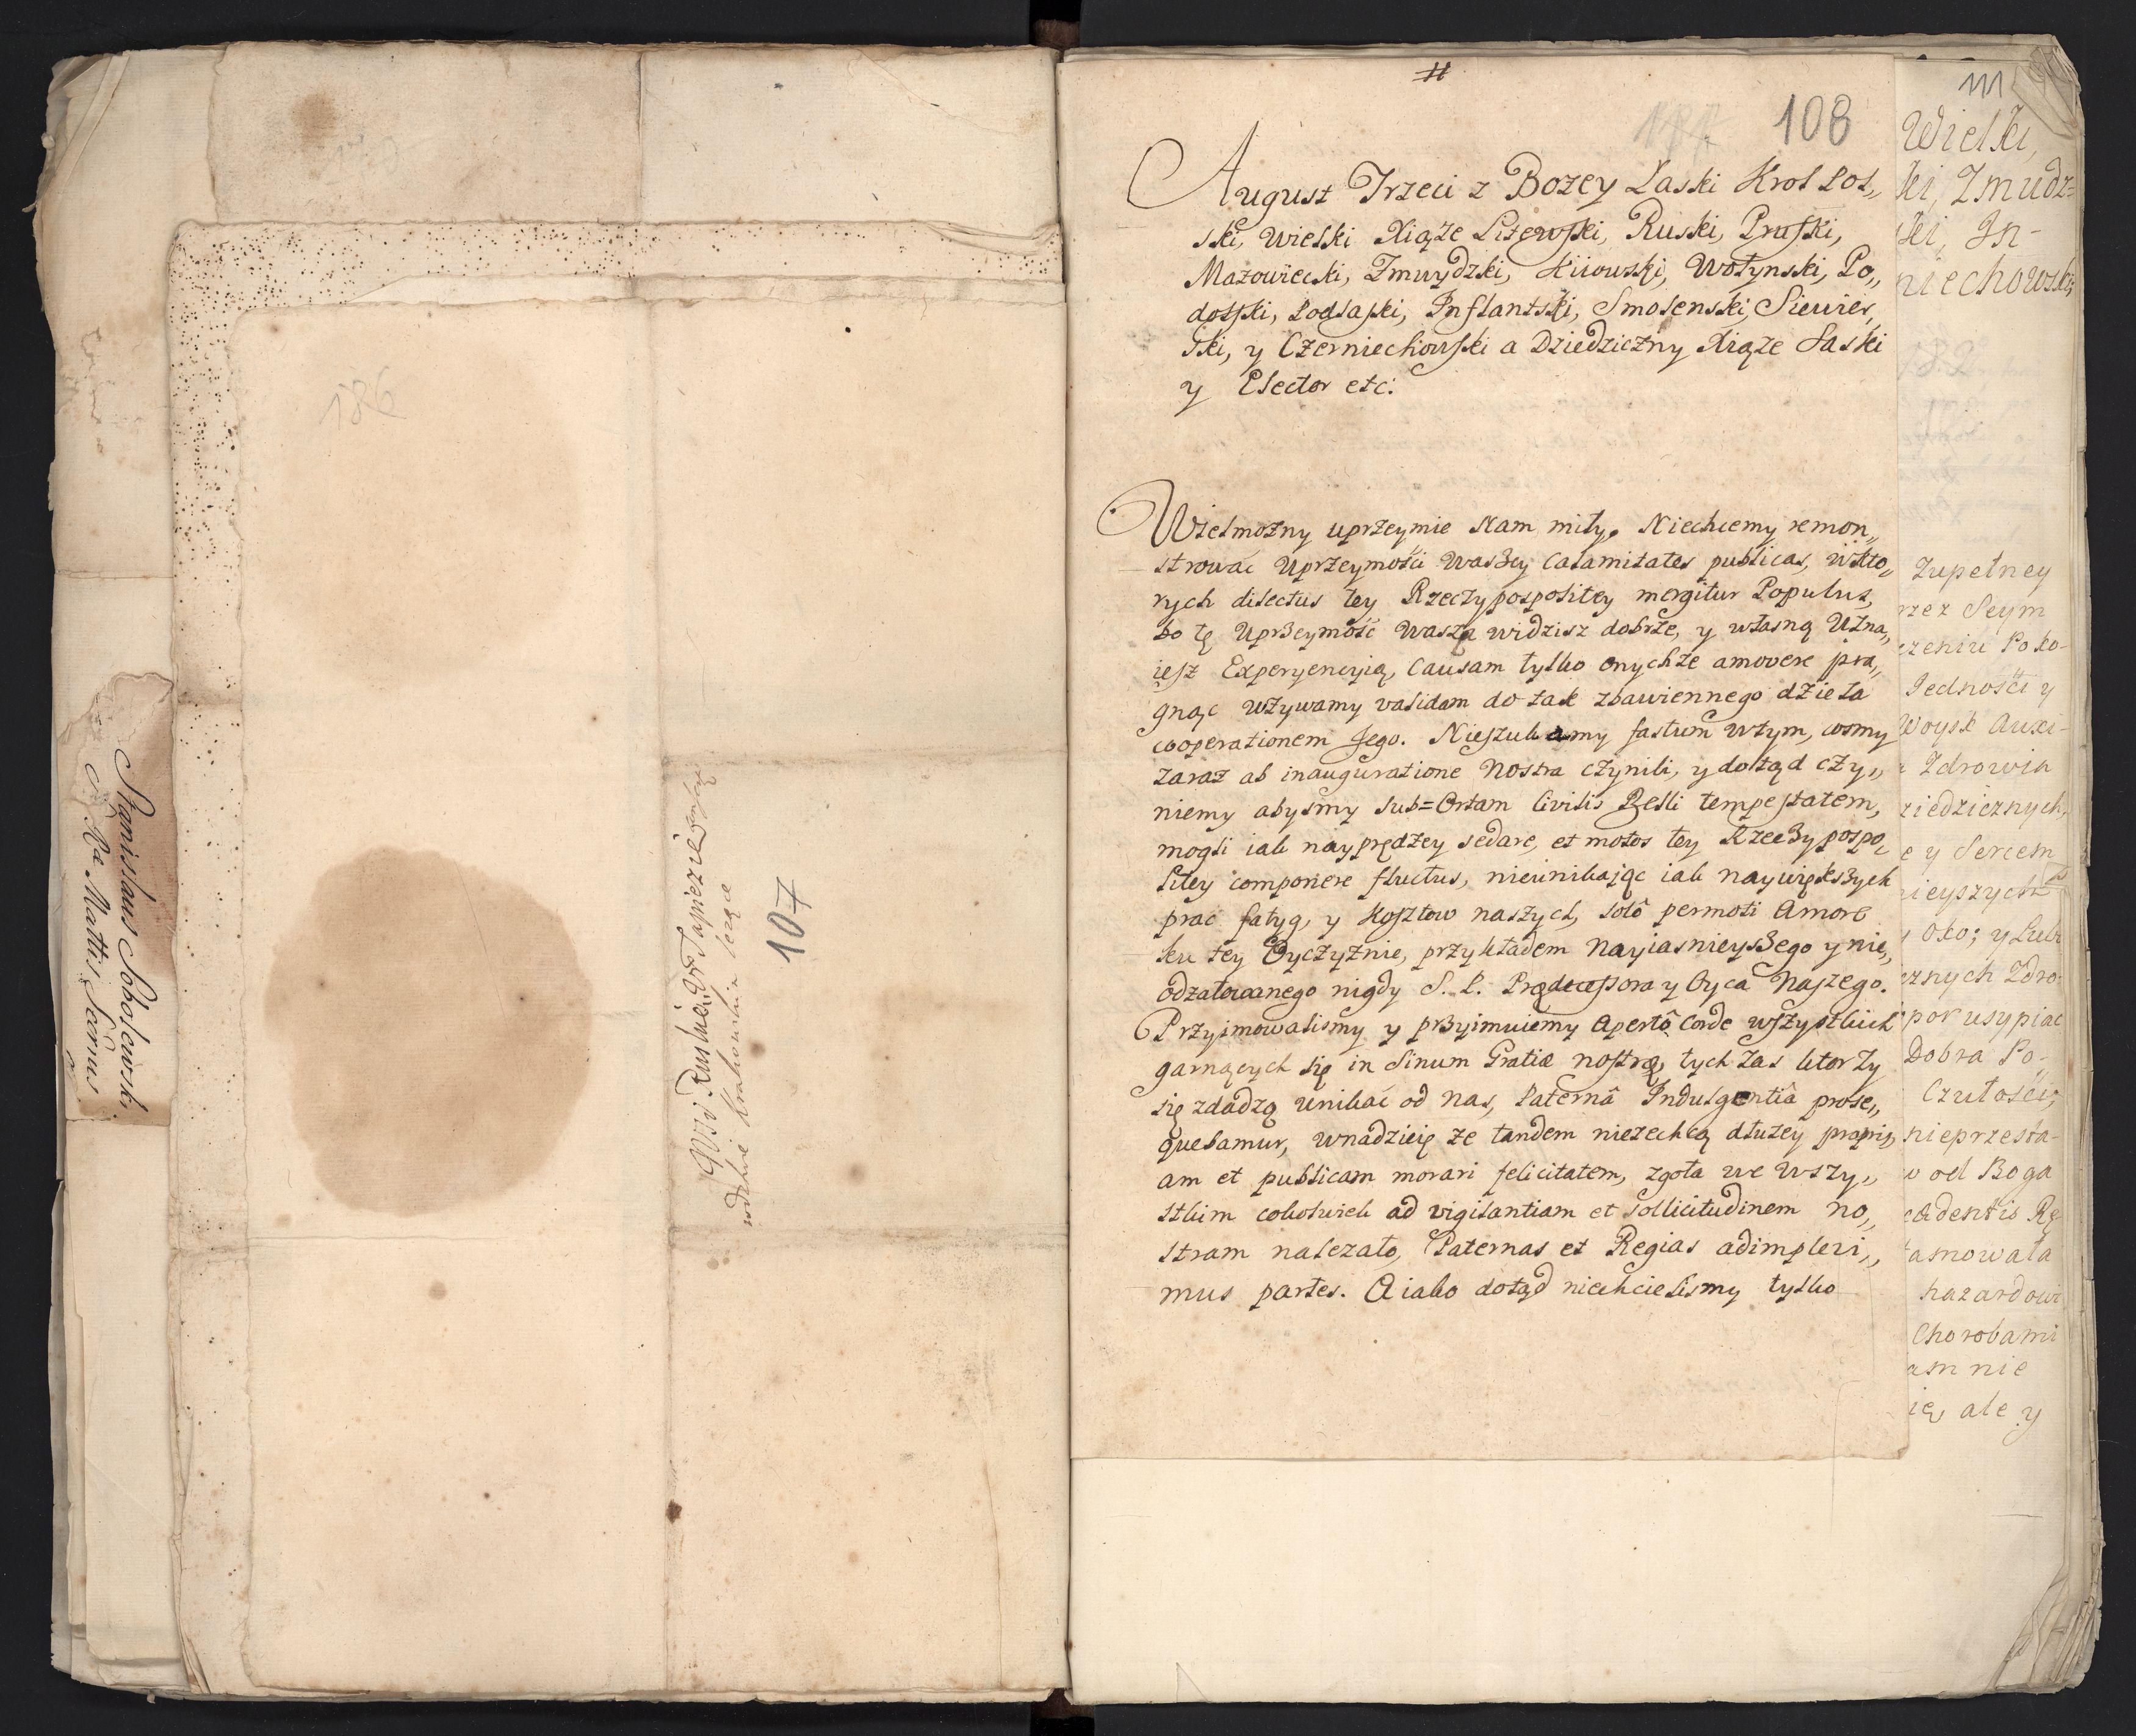 186
Stanislaus Sobolewski
S Ræ Mattis Sªrius
107
108
August Trzeci z Bozey Łaski Krol Pol„
ski, Wielki Xiąże Litewski, Ruski, Pruski,
Mazowiecki, Zmuydzki, Kiiowski, Wołynski, Po„
dolski, Podlaski, Inflantski, Smolenski, Siewier„
ski, y Czerniechowski a Dziedziczny Xiąże Saski
y Elector etc:
Wielmożny uprzeymie Nam miły. Niechcemy remon„
strować Uprzeymości Waszey Calamitates publicas, wkto„
rych dilectus tey Rzeczypospolitey mergitur Populus,
bo tę Uprzeymość Wasza widzisz dobrze, y własną Uzna„
iesz Experyencyią, Causam tylko onychże amovere pra„
gnąc używamy validam do tak zbawiennego dzieła
cooperationem Jego. Nieszukamy fastum wtym, cosmy
zaraz ab inauguratione Nostra czynili, y dotąd czy„
niemy abysmy sub=Ortam Civilis Belli tempestatem,
mogli iak nayprędzey sedare, et motos tey Rzeczypospo„
litey componere fluctus, nieunikaiąc iak naywiększych
prac fatyg, y kosztow naszych, solô permoti Amore
ku tey Oyczyznie, przykładem Nayiasnieyszego y nie„
odzałowanego nigdy S. P. Prædecessora y Oyca Naszego.
Przyimowalismy y przyimuiemy Apertô Corde wszystkich
garnących się in Sinum Gratiæ nostræ, tych zas ktorzy
się zdadzą unikać od nas, Paternâ Indulgentiâ prose„
quebamur, wnadzieię ze tandem niezechcą dłużey propri„
am et publicam morari felicitatem, zgoła we wszy„
stkim cokolwiek ad vigilantiam et sollicitudinem no„
stram nalezało, Paternas et Regias adimplevi„
mus partes. A iako dotąd niechcielismy tylko
111
Wielki,
ki, Zmudz=
ski, In-
niechowski,
Zupełney
rzez Seym
Jedności y
Woysk Auxi-
Zdrowia
ziedzicznych,
e y Sercem
Oko; y Lub
cznych Zdro-
por usypiac
Dobra Po-
Czułości,
nieprzesta-
w od Boga
amowała
hazardowi
Chorobami
am nie
ię, ale y